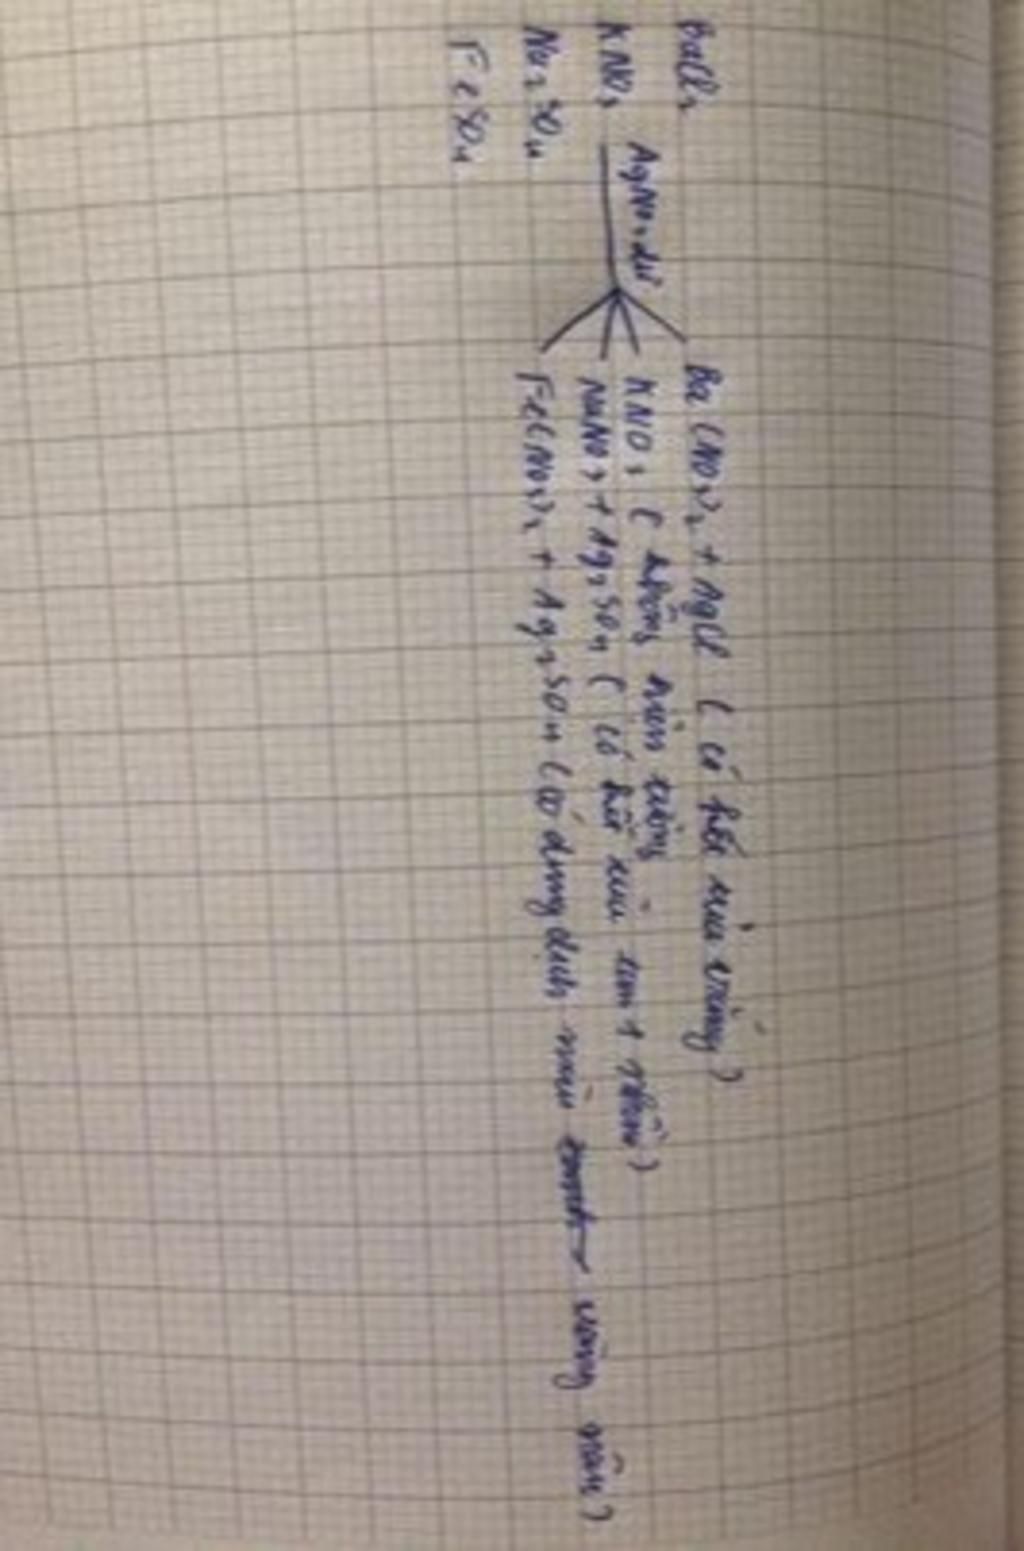 BaCl₂
KNO₃ AgNO₃ dư
Na₂SO₄
FeSO₄
Ba(NO₃)₂ + AgCl ( có kết màu trắng )
KNO₃ ( không hiện tượng
NaNO₃ + Ag₂SO₄ ( có kết màu
Fe(NO₃)₂ + Ag₂SO₄ (có dung dịch màu vàng nâu)